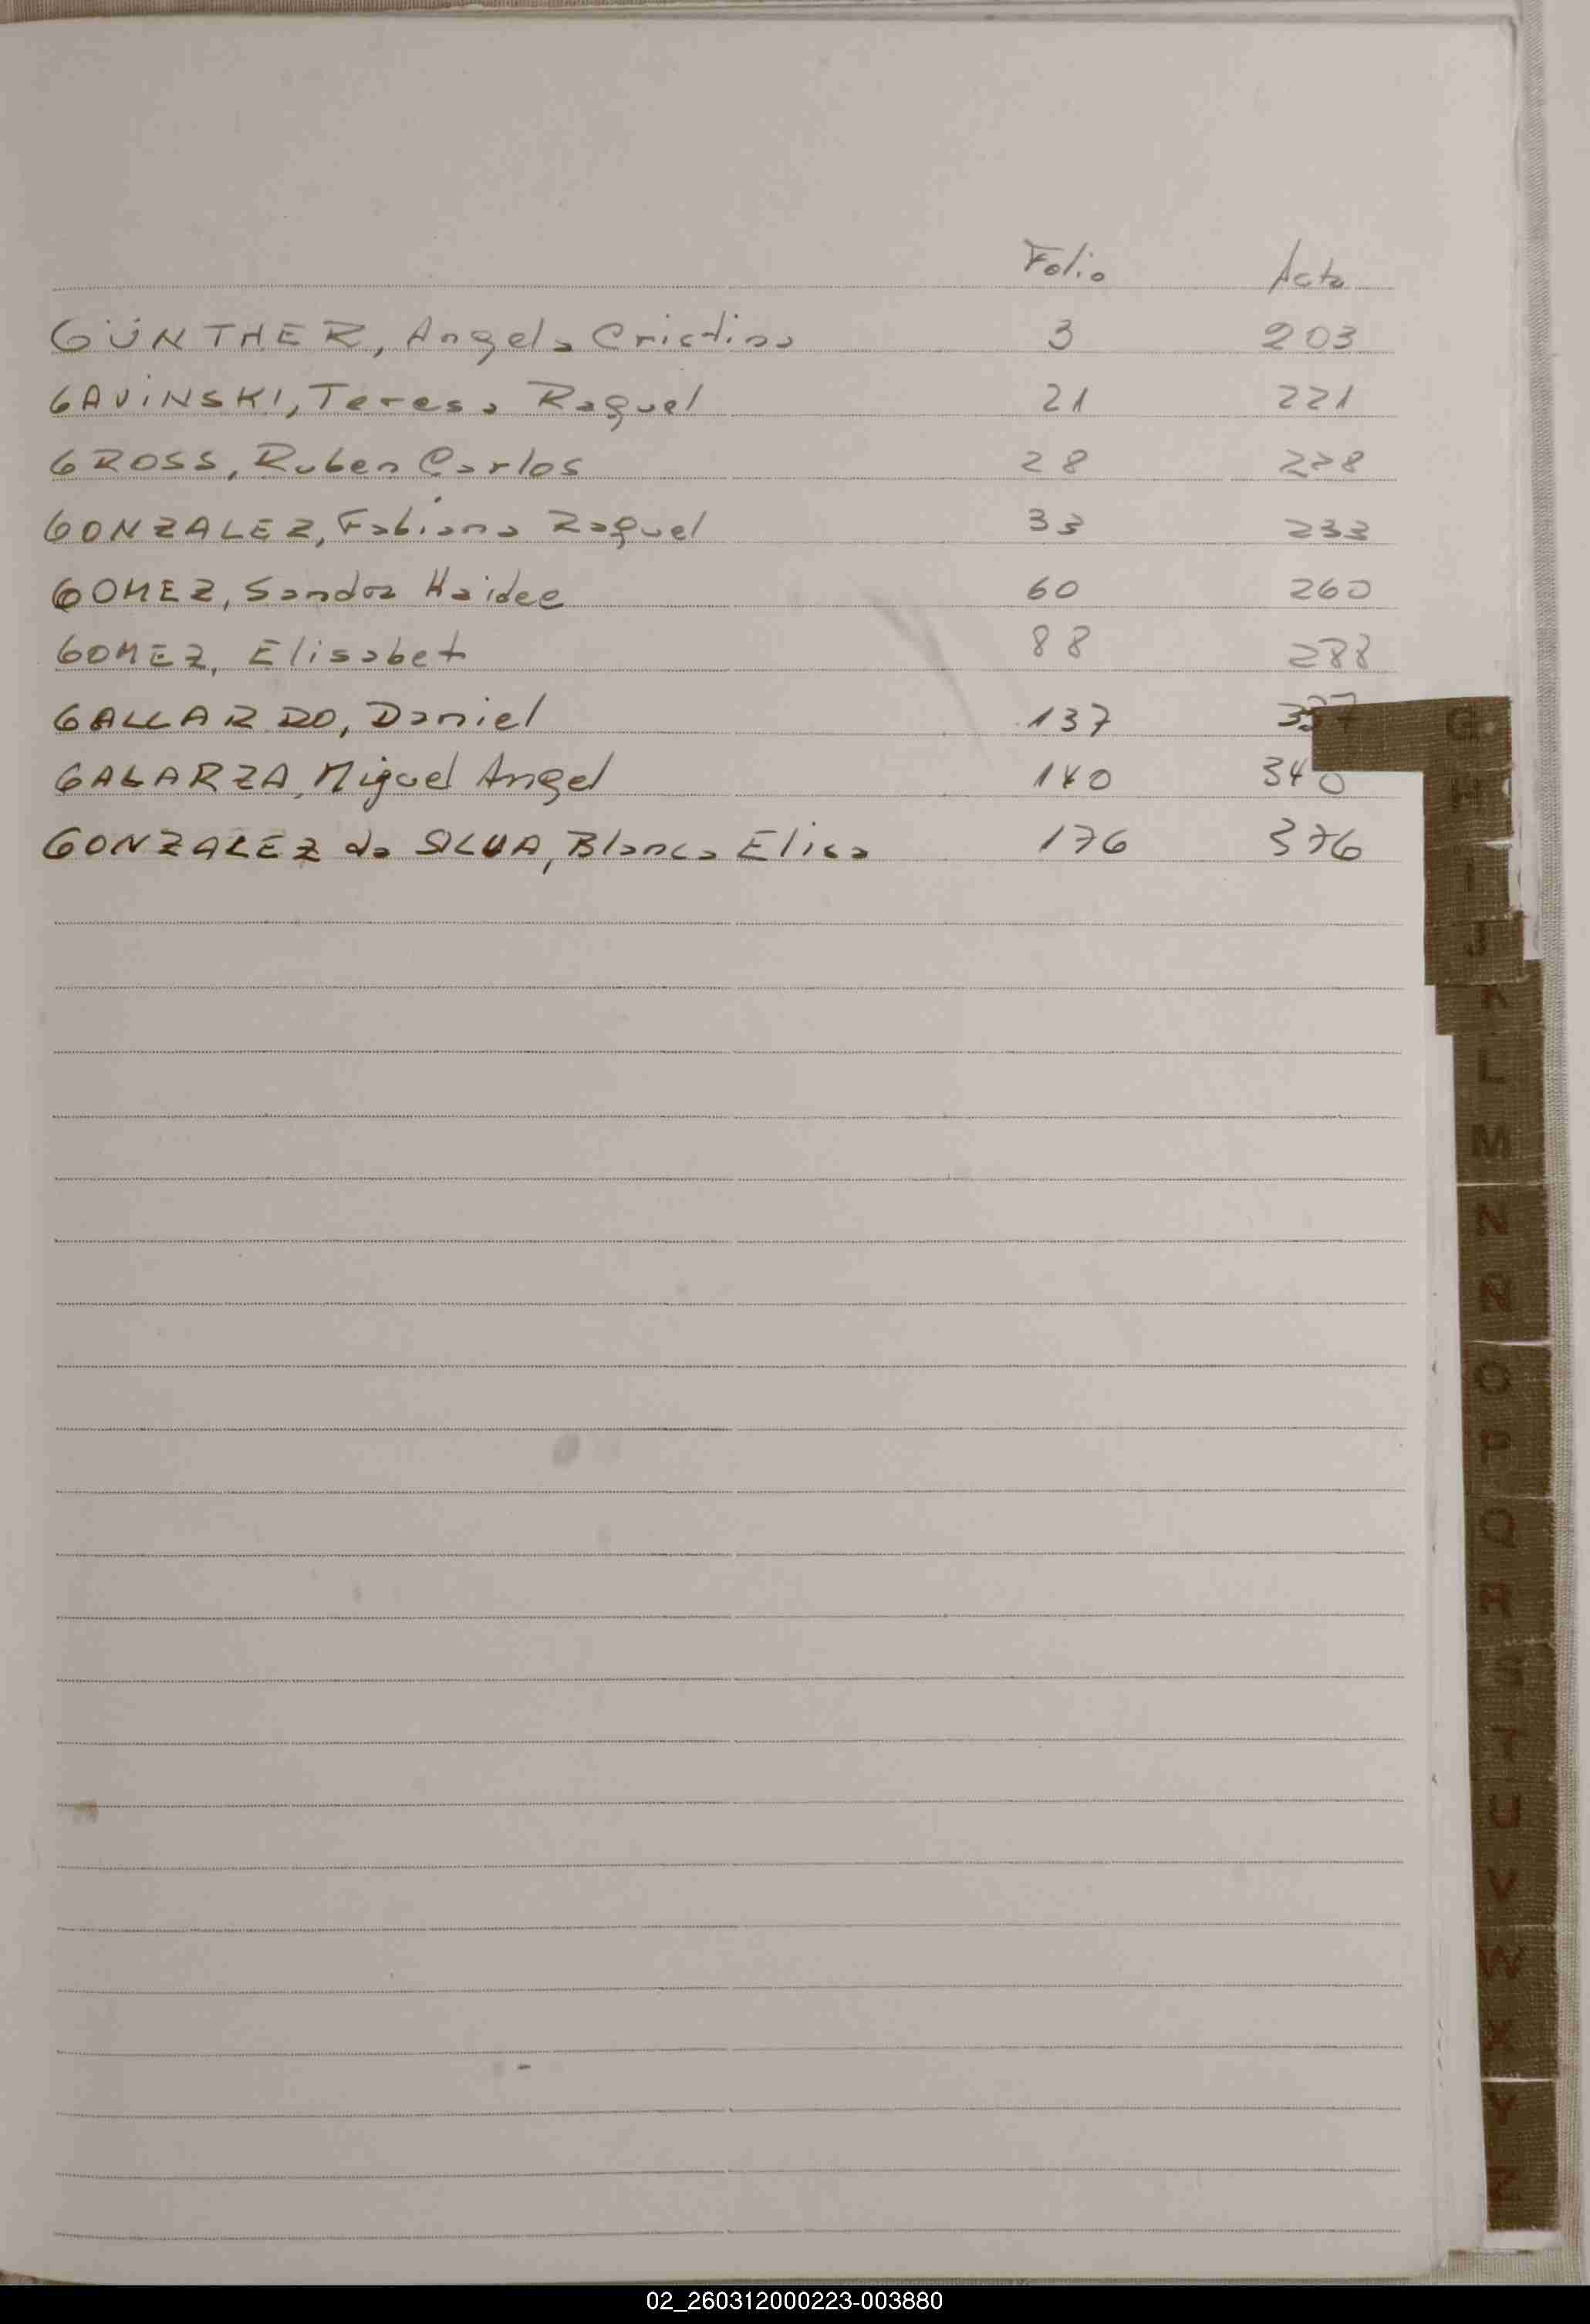 Folio Acta
GÜNTHER, Angela Cristina 3 203
GAVINSKI, Teresa Raquel 21 221
GROSS, Ruben Carlos 28 228
GONZALEZ, Fabiana Raquel 33 233
GOMEZ, Sandra Haidee 60 260
GOMEZ, Elisabet 88 288
GALLARDO, Daniel 137 337
GALARZA, Miguel Angel 140 340
GONZALEZ da SILVA, Blanca Elisa 176 376
G
H
I
J
K
L
M
N
N
O
P
Q
R
S
T
U
V
W
X
Y
Z
02_260312000223-003880